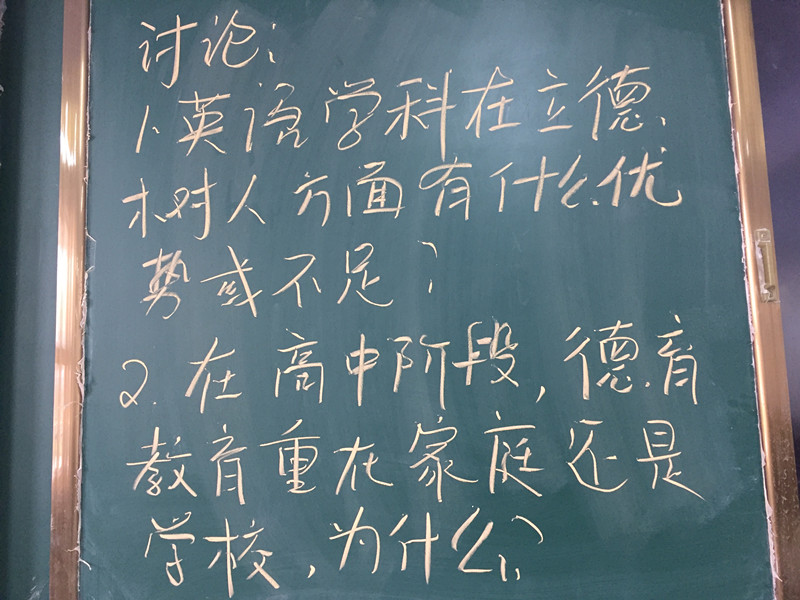 讨论:
1.英语学科在立德
树人方面有什么优
势或不足?
2.在高中阶段,德育
教育重在家庭还是
学校,为什么?